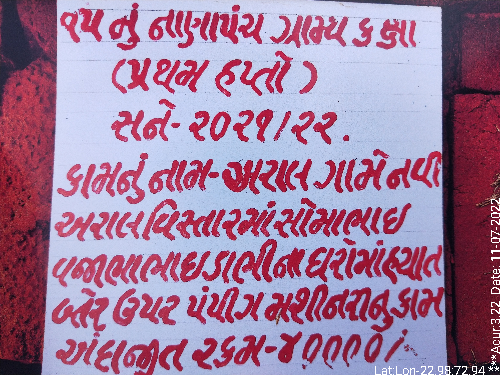 ૧૫ નું નાણાપંચ ગ્રામ્ય કક્ષા
(પ્રથમ હપ્તો)
સને-૨૦૨૧/૨૨.
કામનું નામ-અરાલ ગામે નવી
અરાલ વિસ્તારમાં સોમાભાઇ
વજાભાભાઇ ડાભીના ઘરોમાં હયાત
બોર ઉપર પંપીગ મશીનરીનુ કામ
અંદાજીત રકમ-૪૦૦૦૦/
***Acur:3.22 Date: 11-07-2022
Lat:Lon-22.98:72.94 ***